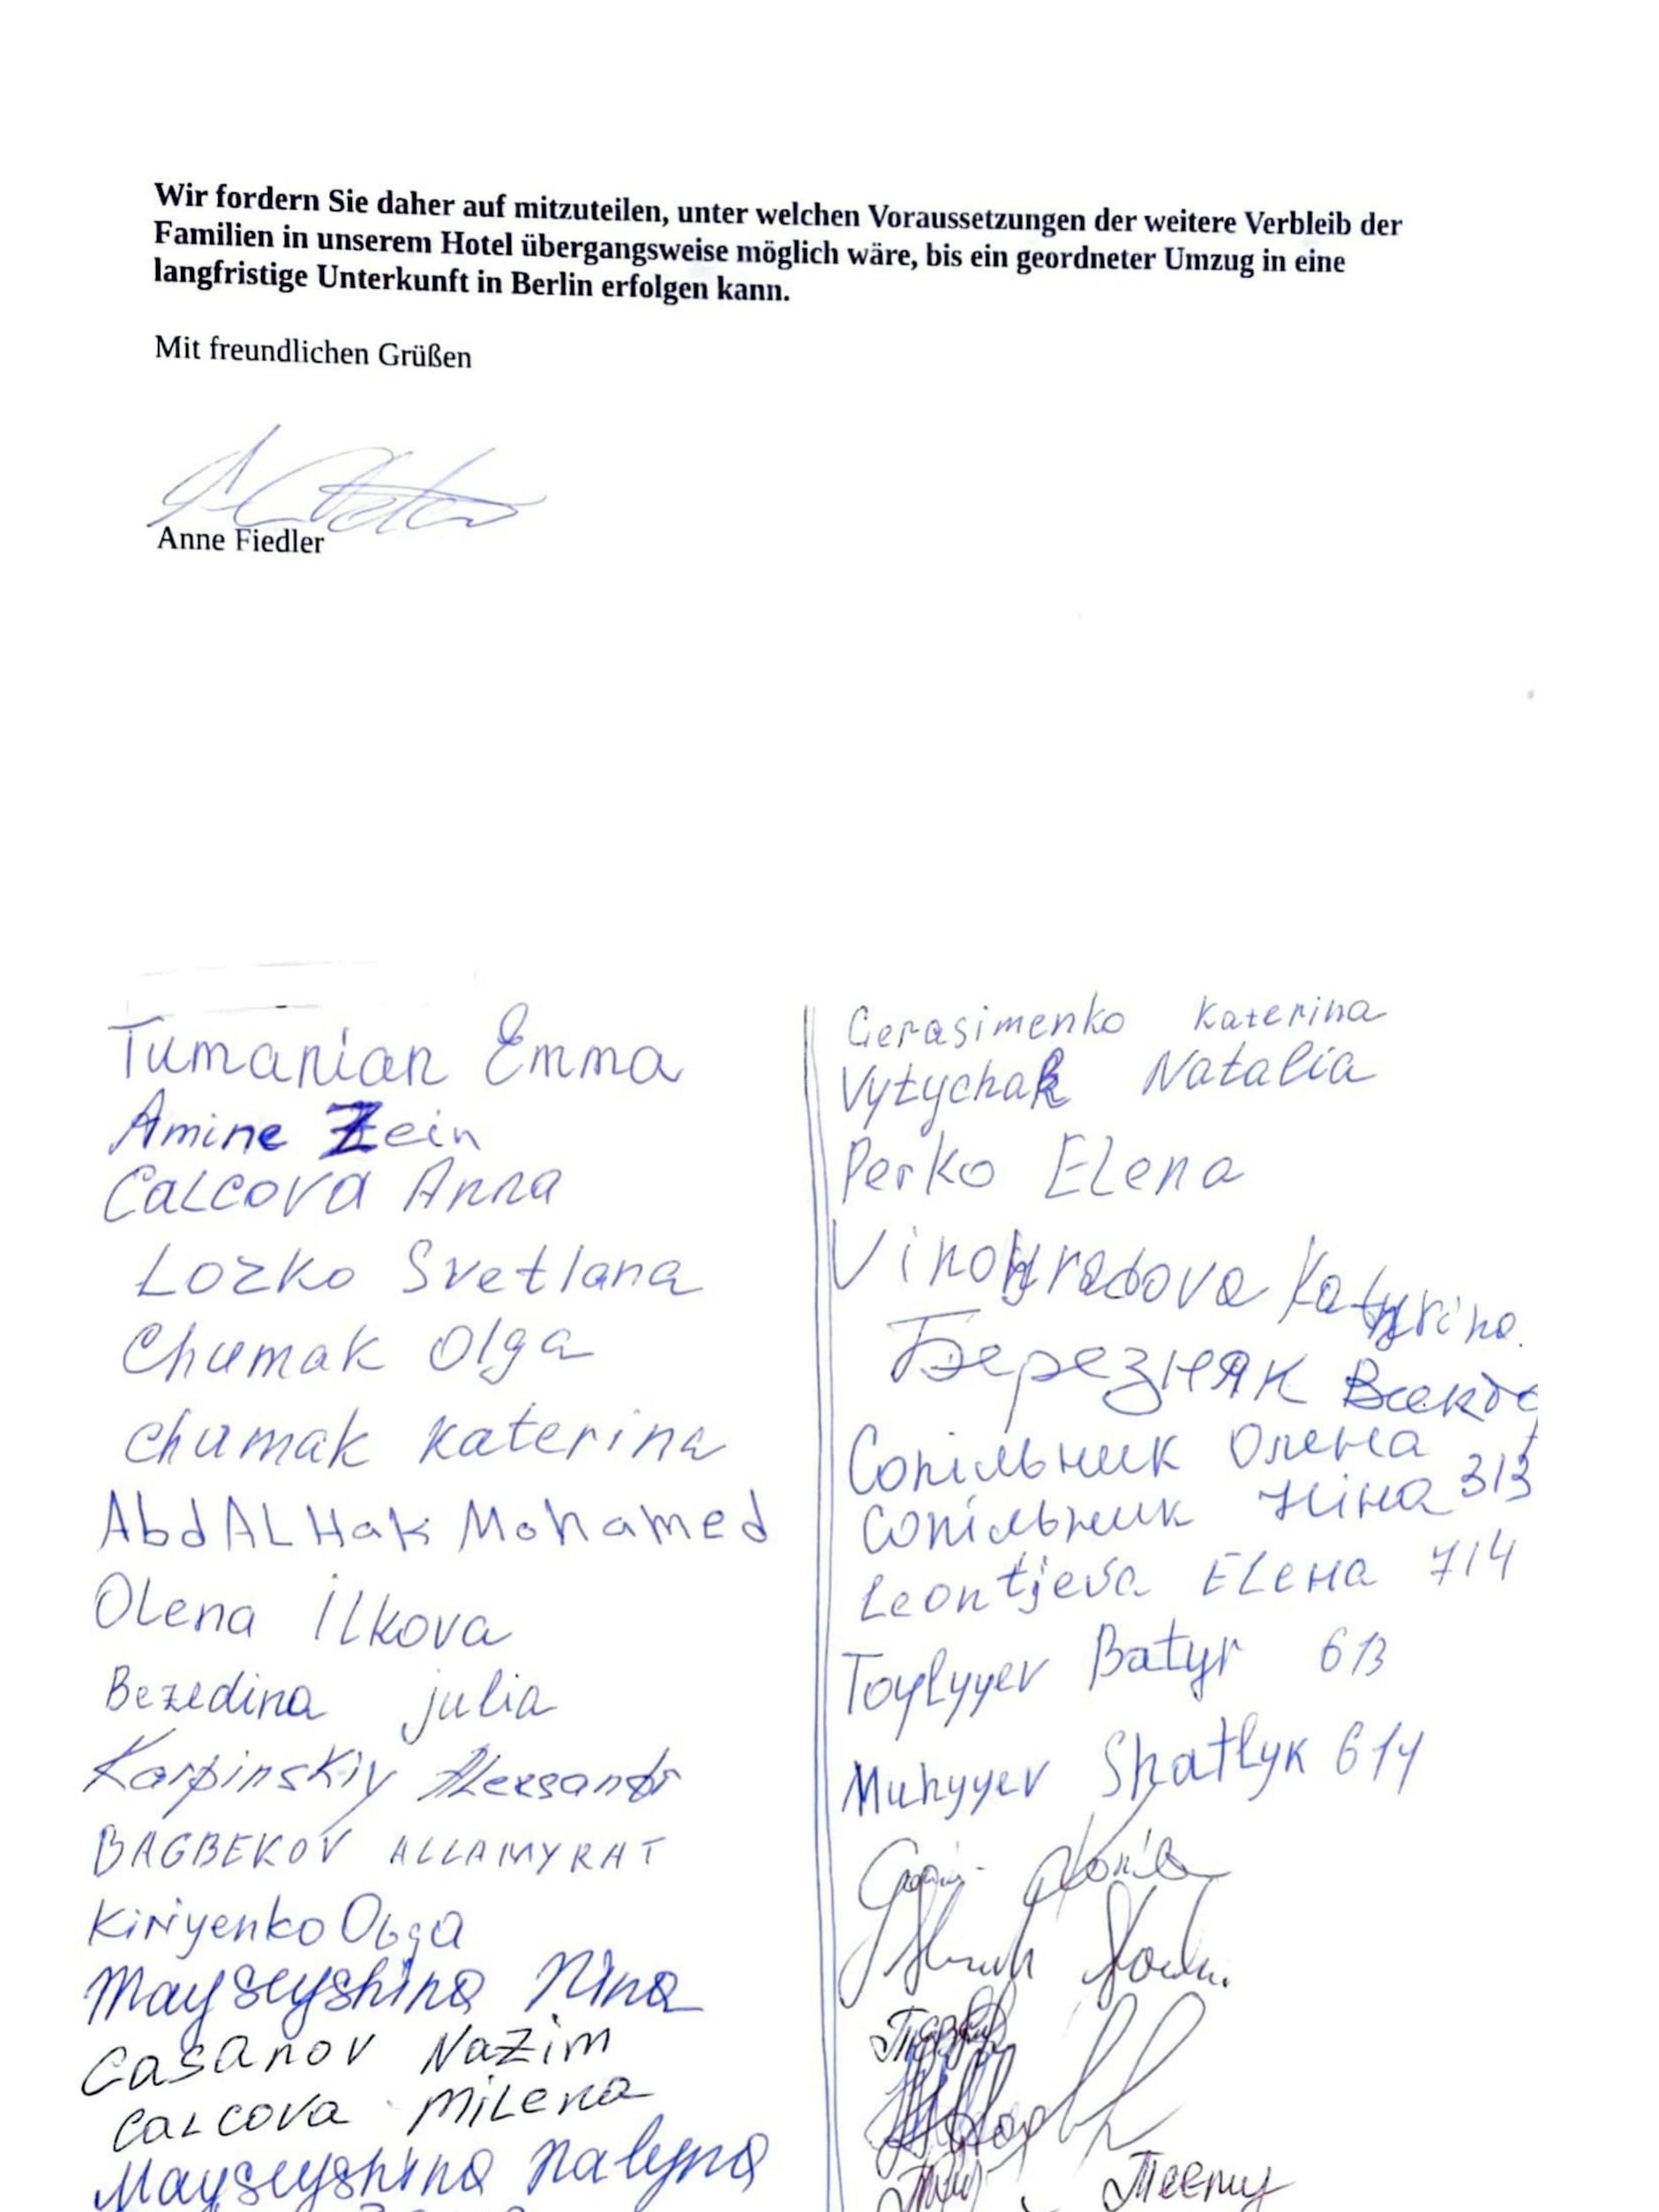 Wir fordern Sie daher auf mitzuteilen, unter welchen Voraussetzungen der weitere Verbleib der
Familien in unserem Hotel übergangsweise möglich wäre, bis ein geordneter Umzug in eine
langfristige Unterkunft in Berlin erfolgen kann.
Mit freundlichen Grüßen
Anne Fiedler
Tumanian Emma
Amine Zein
CALCOVA Anna
Lozko Svetlana
Chumak Olga
Chumak Katerina
AbdALHak Mohamed
Olena Ilkova
Bezedina julia
Karpinskiy
BAGBEKOV ALLAMYRAT
Kiriyenko
Mayseyshina Nina
Casanov Nazim
CALCOVA Milena
Mayseyshina
Gerasimenko Katerina
Vytychak Natalia
Perko Elena
Vinohradova
Березняк
Сопільник Олена
Сопільник Ніна 313
Leontjeva 714
Toylyyev Batyr 613
Muhyyev Shatlyk 614